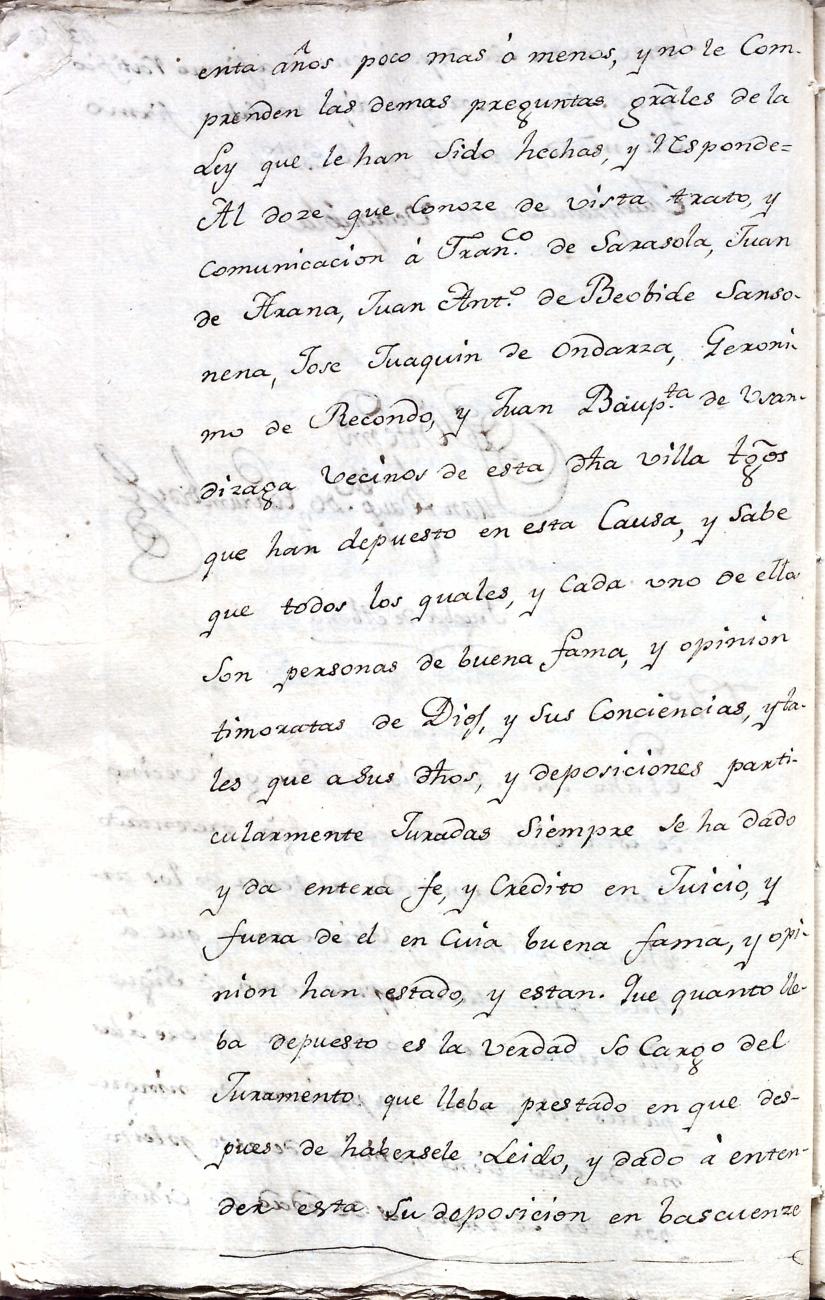 enta años poco mas ó menos, y no le Com-
prenden las demas preguntas grãles de la
Ley que le han sido hechas, y responde=
Al doze que conoze de vista trato, y
comunicacion á Fran.co de Sarasola, Juan
de Arana, Juan Ant.o de Beobide Sanso-
nena, Jose Juaquin de Ondarza, Geroni-
mo de Recondo, y Juan Baup.ta de Vsan-
dizaga vecinos de esta dha villa tgõs
que han depuesto en esta Causa, y sabe
que todos los quales, y cada vno de ella
son personas de buena fama, y opinion
timoratas de Dios, y sus Conciencias, y ta-
les que a sus dhos, y deposiciones parti-
cularmente Juradas siempre se ha dado
y da entera fe, y Credito en Juicio, y
fuera de el en Cuia buena fama, y opi-
nion han estado, y estan. Que quanto lle-
ba depuesto es la verdad so Cargo del
Juramento que lleba prestado en que des-
pues de habersele Leido, y dado á enten-
der esta su deposicion en bascuenze